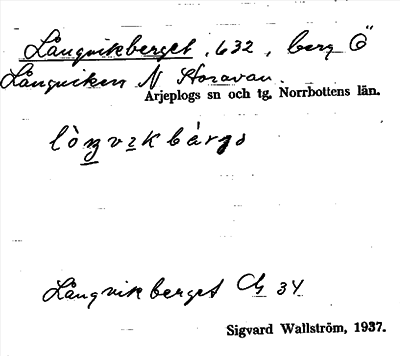 Långvikberget, 632, berg Ö
Långviken N Storavan.
Arjeplogs sn och tg, Norrbottens län.
lòŋvɪkbárgə
Långvikberget Ch 34
Sigvard Wallström, 1937.